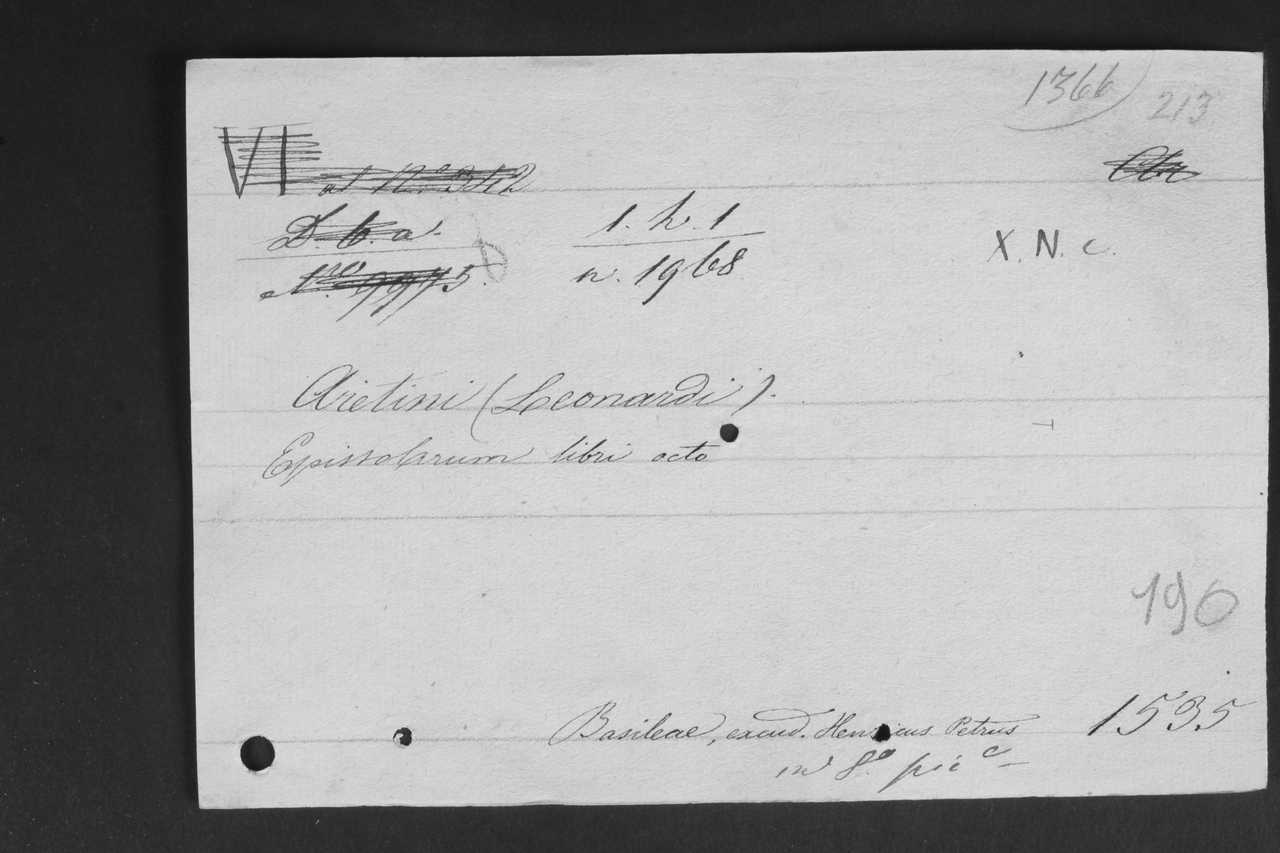 1366
213
VI
al N.º 342
D. b. a.
1. h. 1
n. 1968
X. N. c.
Aretini (Leonardi).
Epistolarum libri octo
190
Basileae, excud. Henricus Petrus 1535
in 8.º picc